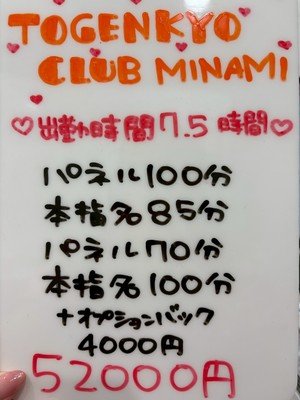 TOGENKYO
CLUB MINAMI
♡出勤時間7.5時間♡
パネル100分
本指名85分
パネル70分
本指名100分
+オプションバック
4000円
52000円